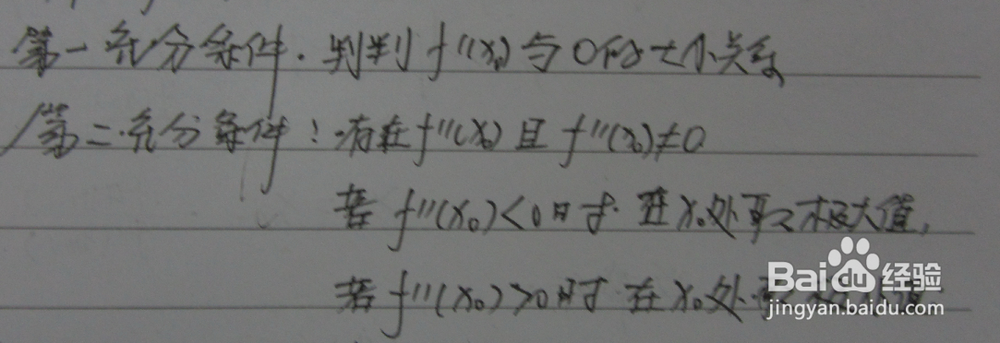 第一充分条件.判判f''(x₀)与0的大小关系
第二充分条件:存在f''(x₀)且f''(x₀)≠0
若f''(x₀)<0时f在x₀处取极大值,
若f''(x₀)>0时f在x₀处取
Baidu经验
jingyan.baidu.com